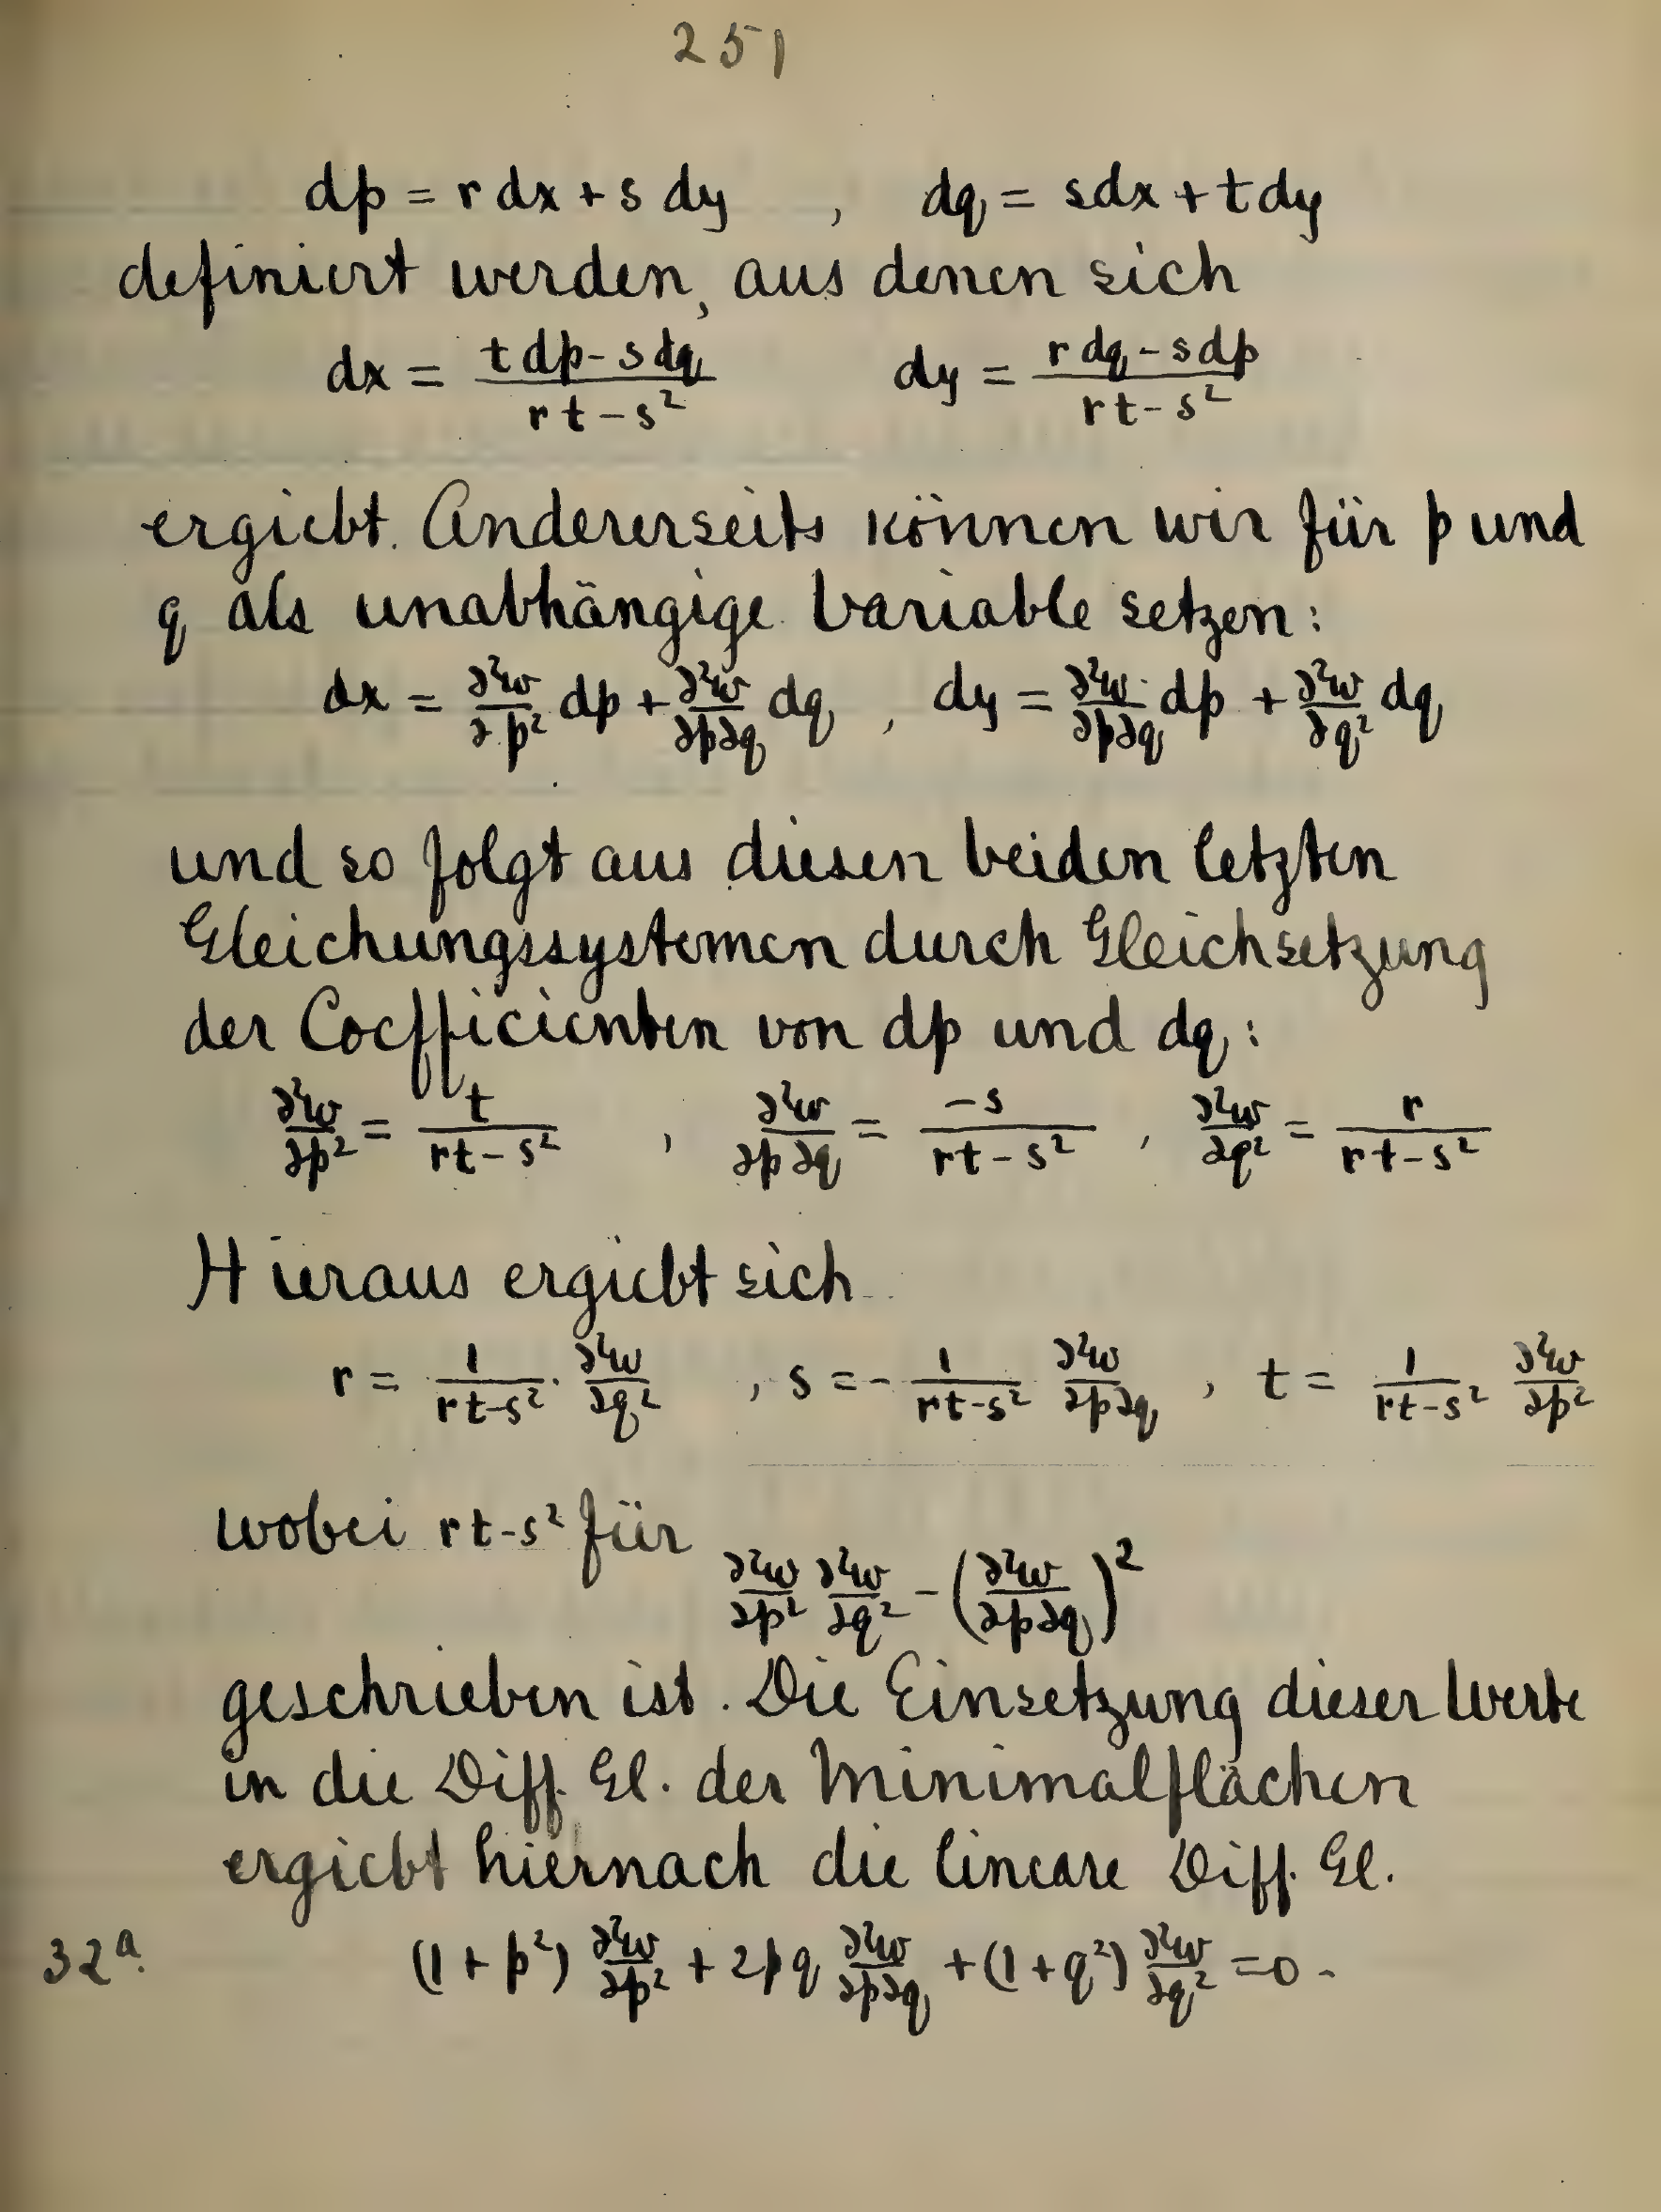 251
dp = r dx + s dy , dq = sdx + t dy
definiert werden, aus denen sich
dx = \frac{t dp - s dq}{rt - s^2} dy = \frac{r dq - s dp}{rt - s^2}
ergiebt. Andererseits können wir für p und
q als unabhängige Variable setzen:
dx = \frac{∂^2w}{∂p^2} dp + \frac{∂^2w}{∂p∂q} dq , dy = \frac{∂^2w}{∂p∂q} dp + \frac{∂^2w}{∂q^2} dq
und so folgt aus diesen beiden letzten
Gleichungssystemen durch Gleichsetzung
der Coefficienten von dp und dq:
\frac{∂^2w}{∂p^2} = \frac{t}{rt - s^2} , \frac{∂^2w}{∂p∂q} = \frac{-s}{rt - s^2} , \frac{∂^2w}{∂q^2} = \frac{r}{rt - s^2}
Hieraus ergiebt sich
r = \frac{1}{rt-s^2} · \frac{∂^2w}{∂q^2} , s = - \frac{1}{rt-s^2} \frac{∂^2w}{∂p∂q} , t = \frac{1}{rt-s^2} \frac{∂^2w}{∂p^2}
wobei rt-s^2 für
\frac{∂^2w}{∂p^2} \frac{∂^2w}{∂q^2} - (\frac{∂^2w}{∂p∂q})^2
geschrieben ist. Die Einsetzung dieser Werte
in die Diff. Gl. der Minimalflächen
ergiebt hiernach die lineare Diff. Gl.
32^a. (1 + p^2) \frac{∂^2w}{∂p^2} + 2pq \frac{∂^2w}{∂p∂q} + (1 + q^2) \frac{∂^2w}{∂q^2} = 0.